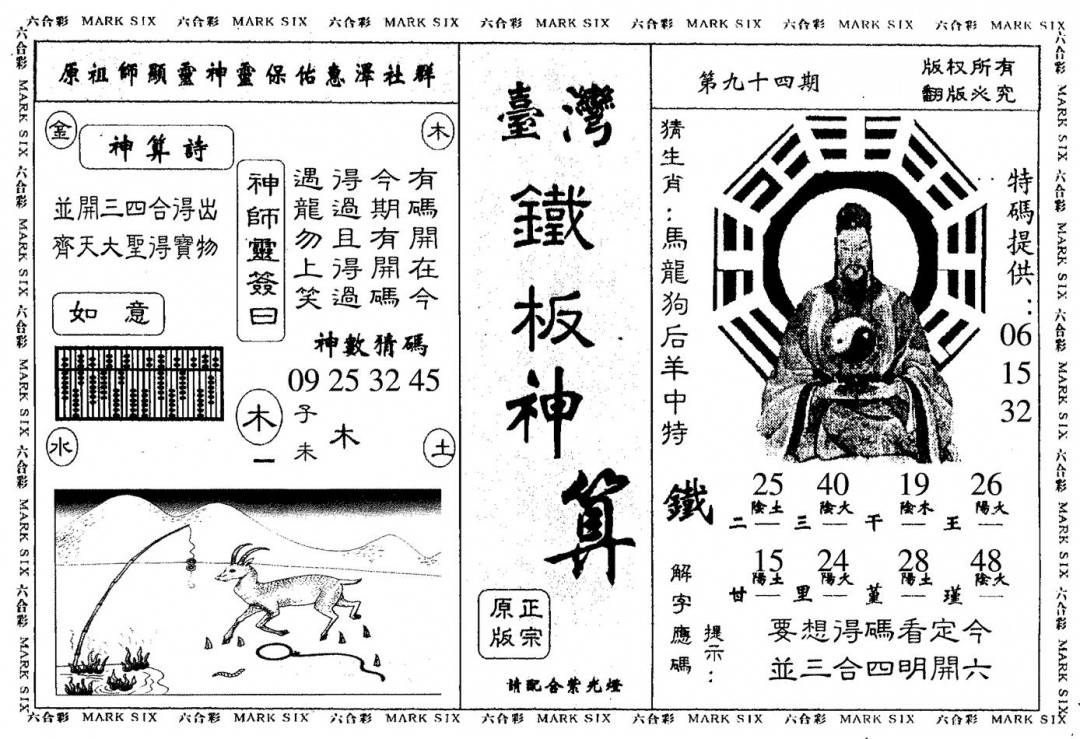 六合彩 MARK SIX 六合彩 MARK SIX 六合彩 MARK SIX 六合彩 MARK SIX 六合彩 MARK SIX 六合彩 MARK SIX 六合彩 MARK SIX
六合彩 MARK SIX 六合彩 MARK SIX 六合彩 MARK SIX 六合彩 MARK SIX 六合彩 MARK SIX
原祖師顯靈神靈保佑惠澤社群
金
木
神算詩
並開三四合得出
齊天大聖得寶物
如意
神師靈簽曰
有碼開在今
今期有開碼
得過且得過
遇龍勿上笑
神數猜碼
09 25 32 45
木
一
子
未
木
水
土
臺灣
鐵板神算
正宗
原版
請配合紫光燈
第九十四期
版权所有
翻版必究
猜生肖：馬龍狗后羊中特
特碼提供：
06
15
32
鐵
25 40 19 26
陰土 陰火 陰木 陽火
二 三 干 王
15 24 28 48
陽土 陽火 陽土 陰火
甘 里 堇 瑾
解字應碼
提示：
要想得碼看定今
並三合四明開六
六合彩 MARK SIX 六合彩 MARK SIX 六合彩 MARK SIX 六合彩 MARK SIX 六合彩 MARK SIX
六合彩 MARK SIX 六合彩 MARK SIX 六合彩 MARK SIX 六合彩 MARK SIX 六合彩 MARK SIX 六合彩 MARK SIX 六合彩 MARK SIX